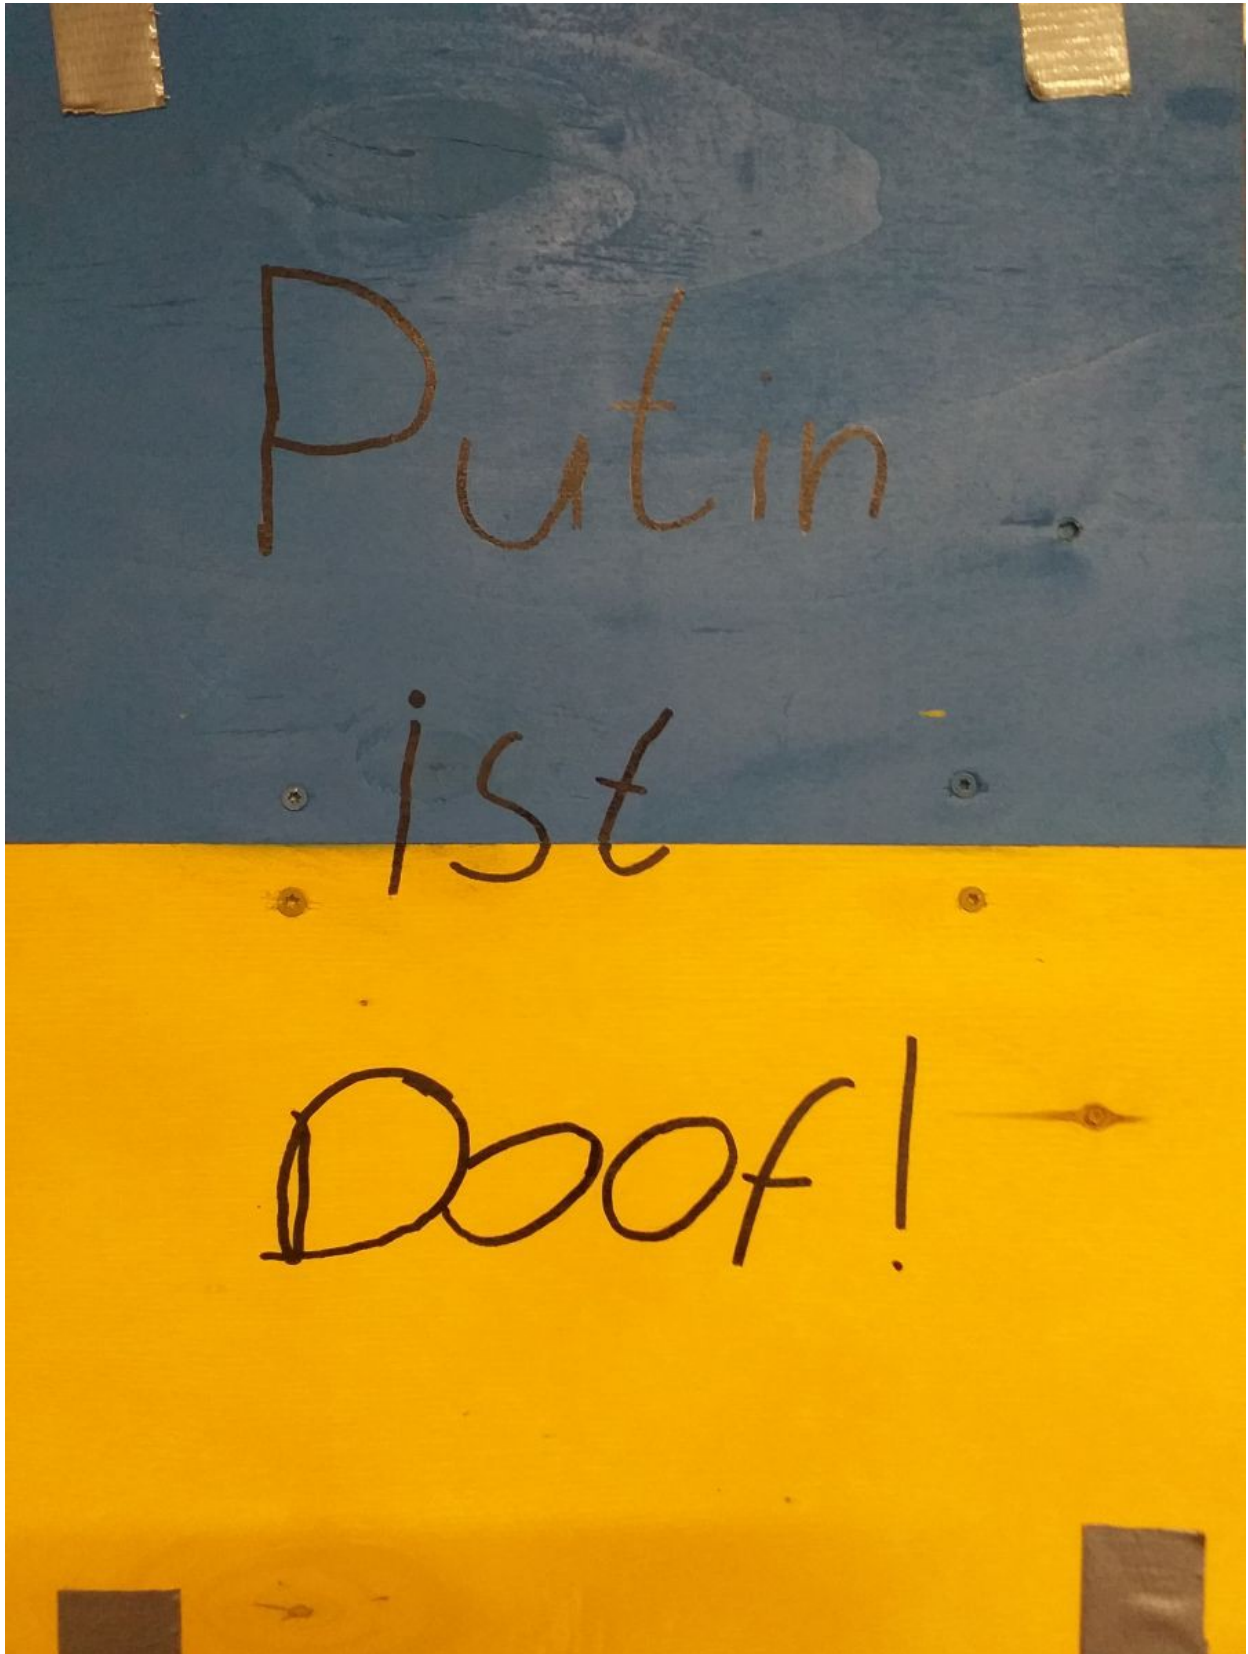 Putin
ist
Doof!